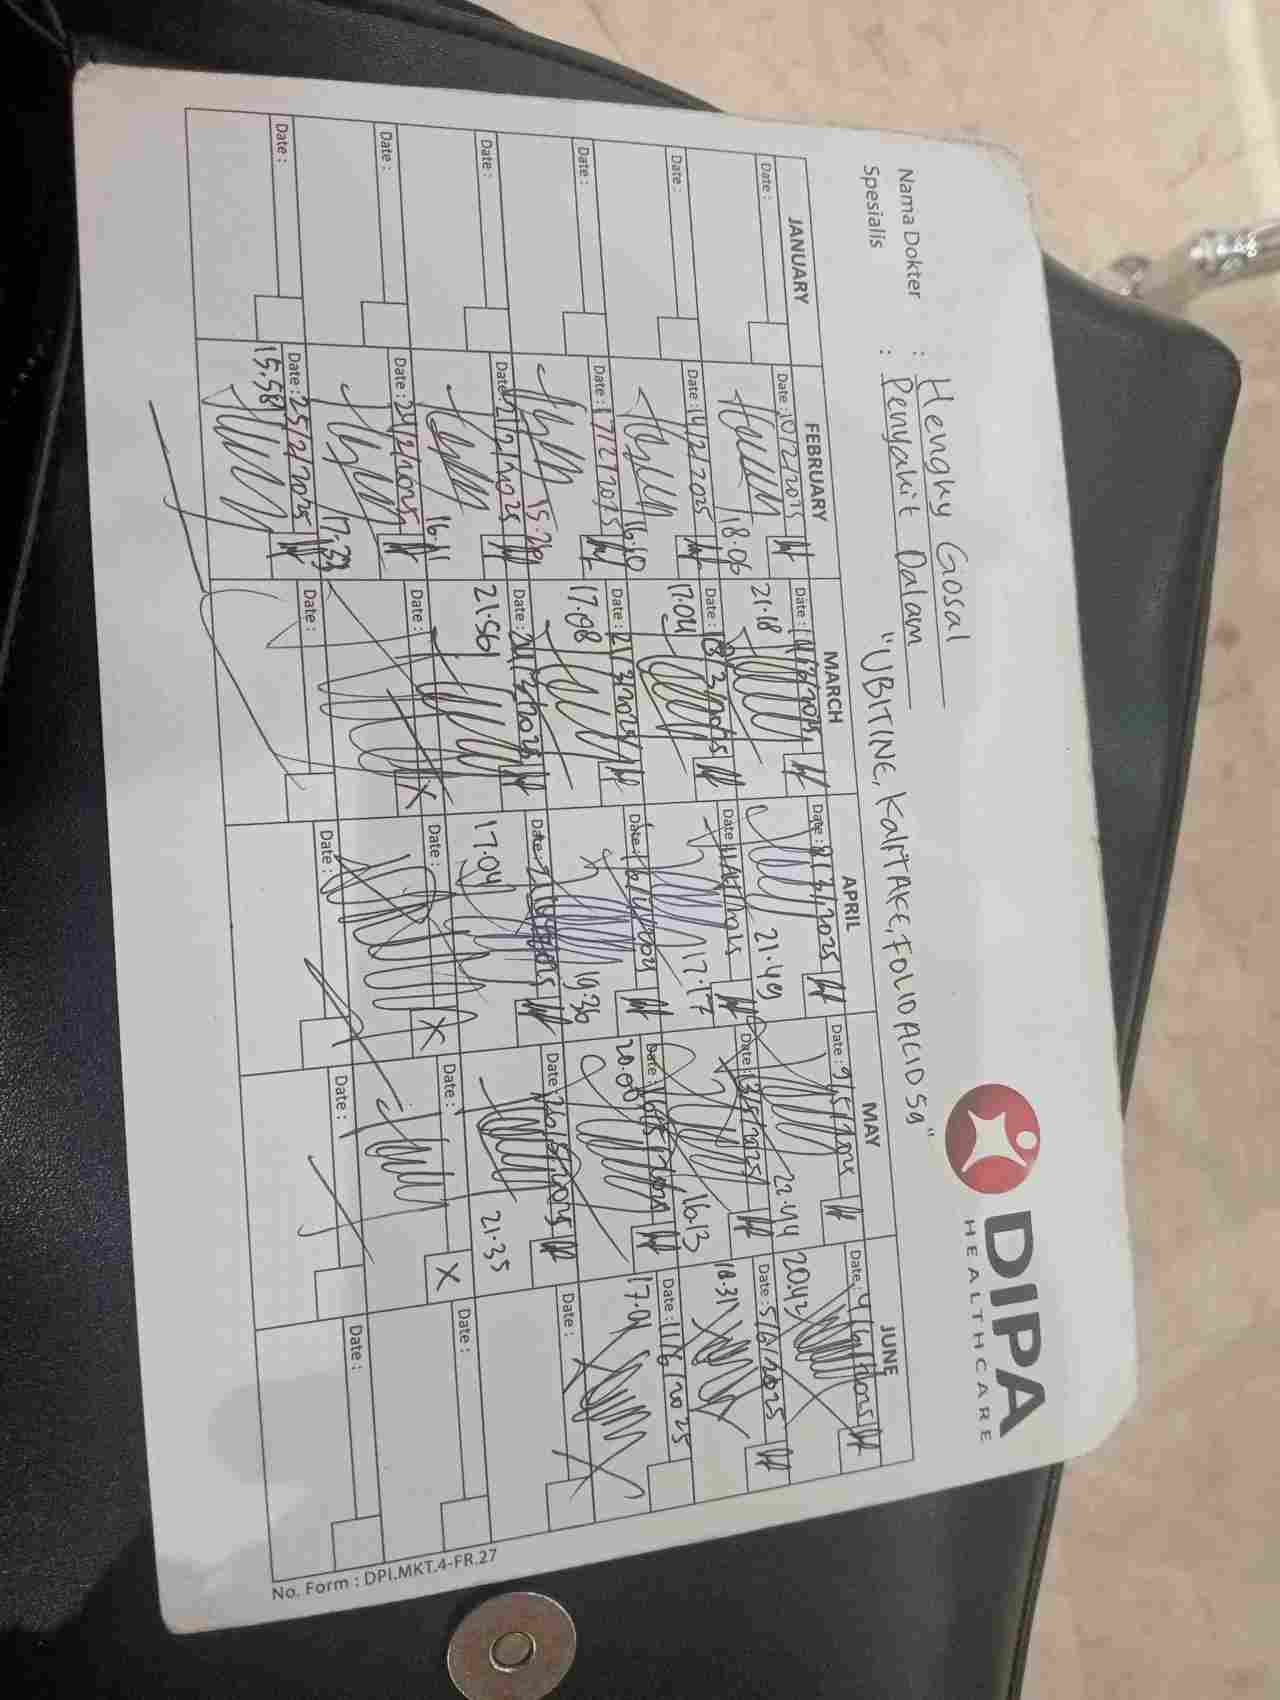 DIPA
HEALTHCARE
Nama Dokter : Hengky Gosal
Spesialis : Penyakit Dalam
"UBITINE, KalTAKE, FOLIO ACID 5g"
JANUARY FEBRUARY MARCH APRIL MAY JUNE
Date : Date : 10/2/2025 Date : Date : Date : 9/5/2025 Date : 4/6/2025
18.06 21.18 21.49 22.44 20.42
Date : Date : 14/2/2025 Date : 13/3/2025 Date : Date : 13/5/2025 Date : 5/6/2025
16.10 17.04 17.17 16.13 18.31
Date : Date : 17/2/2025 Date : 21/3/2025 Date : Date : Date : 11/6/2025
15.29 17.08 19.36 20.00 17.01
Date : Date : 21/2/2025 Date : 24/3/2025 Date : Date : Date :
16.11 21.56 17.04 21.35
Date : Date : 24/2/2025 Date : Date : Date : Date :
17.33 X X X
Date : Date : 25/2/2025 Date : Date : Date : Date :
15.58
No. Form : DPI.MKT.4-FR.27